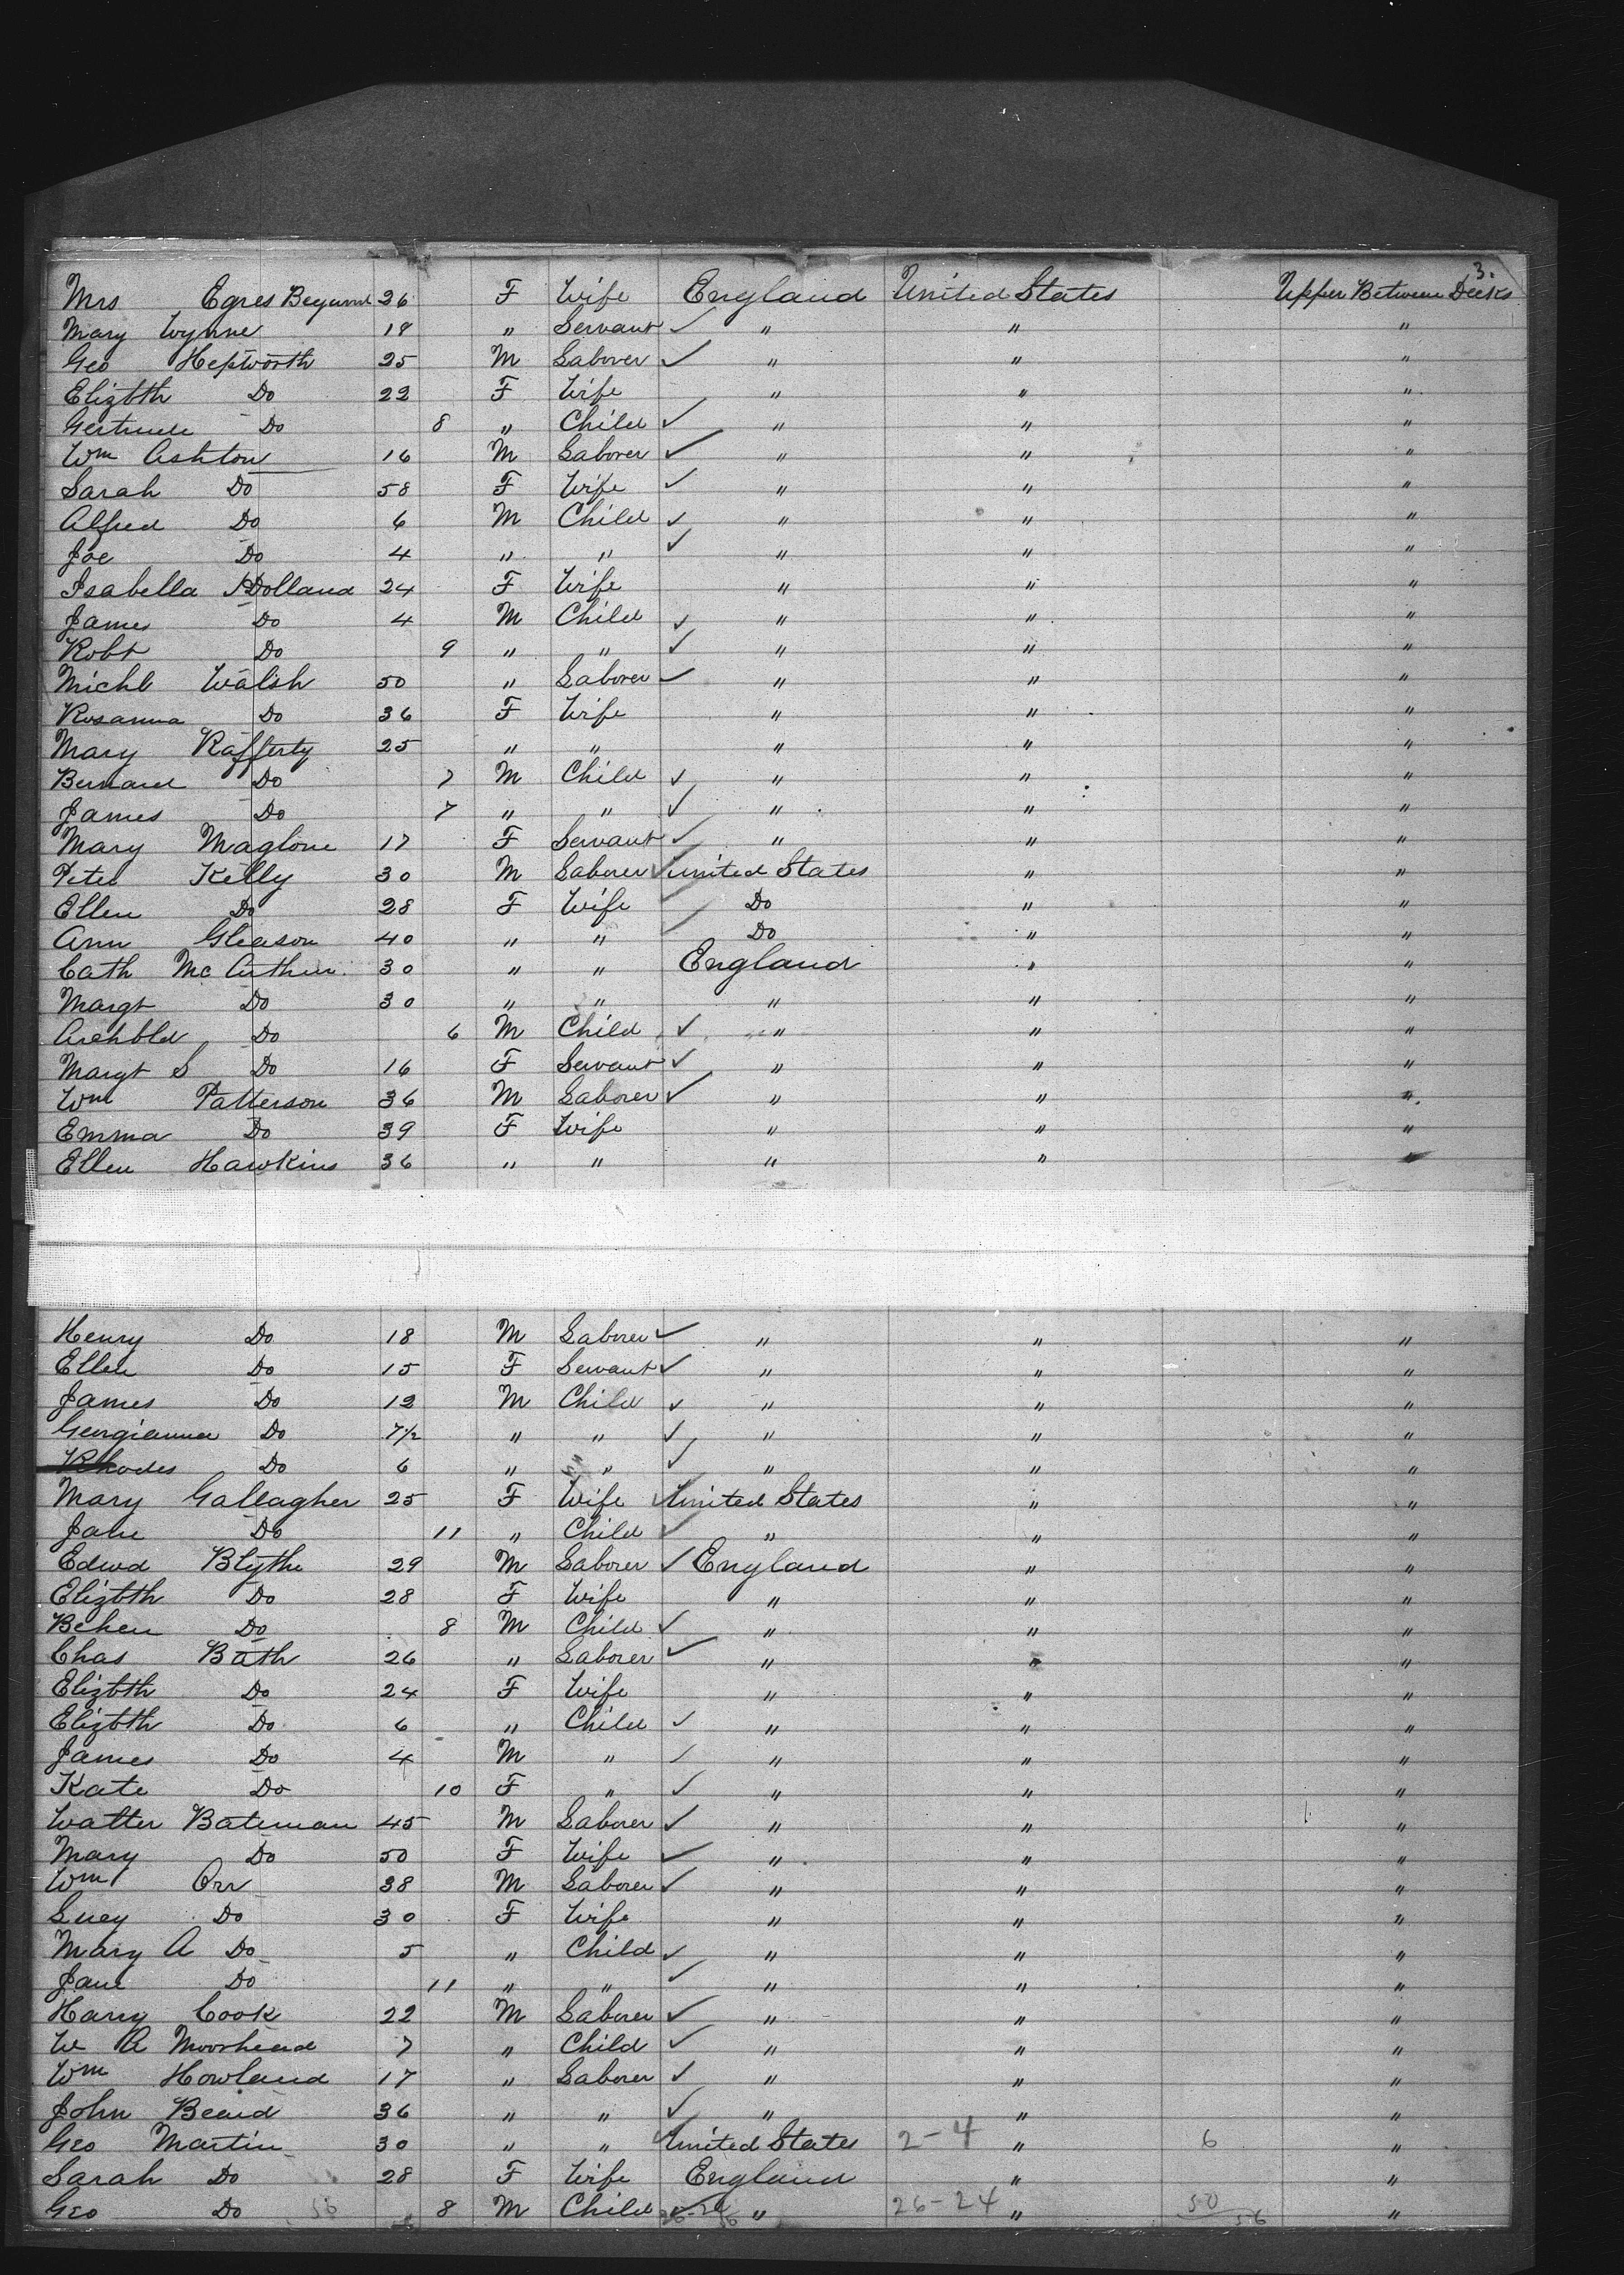 3.
Mrs Egres Begund 26 F Wife England United States Upper Between Decks
Mary Wynne 18 " Servant ✓ " " "
Geo Hepworth 25 M Laborer ✓ " " "
Elizbth Do 22 F Wife " " "
Gertrude Do 8 " Child ✓ " " "
Wm Ashton 16 M Laborer ✓ " " "
Sarah Do 58 F Wife ✓ " " "
Alfred Do 6 M Child ✓ " " "
Joe Do 4 " " ✓ " " "
Isabella Holland 24 F Wife " " "
James Do 4 M Child ✓ " " "
Robt Do 9 " " ✓ " " "
Michl Walsh 50 " Laborer ✓ " " "
Rosanna Do 36 F Wife " " "
Mary Rafferty 25 " " " " "
Bernard Do 7 M Child ✓ " " "
James Do 7 " " ✓ " " "
Mary Maglone 17 F Servant ✓ " " "
Peter Kelly 30 M Laborer ✓ United States " "
Ellen Do 28 F Wife ✓ Do " "
Ann Gleason 40 " " ✓ Do " "
Cath McArthur 30 " " England " "
Margt Do 30 " " " " "
Archbld Do 6 M Child ✓ " " "
Margt S Do 16 F Servant ✓ " " "
Wm Patterson 36 M Laborer ✓ " " "
Emma Do 39 F Wife " " "
Ellen Hawkins 36 " " " " "
Henry Do 18 M Laborer ✓ " " "
Ellen Do 15 F Servant ✓ " " "
James Do 12 M Child ✓ " " "
Georgianna Do 7½ " " ✓ " " "
Rhodes Do 6 " " ✓ " " "
Mary Gallagher 25 F Wife ✓ United States " "
Jane Do 11 " Child ✓ " " "
Edwd Blythe 29 M Laborer ✓ England " "
Elizbth Do 28 F Wife " " "
Do 8 M Child ✓ " " "
Chas Bath 26 " Laborer ✓ " " "
Elizbth Do 24 F Wife " " "
Elizbth Do 6 " Child ✓ " " "
James Do 4 M " ✓ " " "
Kate Do 10 F " ✓ " " "
Walter Bateman 45 M Laborer ✓ " " "
Mary Do 50 F Wife ✓ " " "
Wm Orr 38 M Laborer ✓ " " "
Lucy Do 30 F Wife " " "
Mary A Do 5 " Child ✓ " " "
Jane Do 11 " " ✓ " " "
Harry Cook 22 M Laborer ✓ " " "
W A Moorhead 7 " Child ✓ " " "
Wm Howland 17 " Laborer ✓ " " "
John Beard 36 " " ✓ " " "
Geo Martin 30 " " ✓ United States 2-4 " 6 "
Sarah Do 28 F Wife England " "
Geo Do 56 8 M Child ✓ " 26-24 " 50 56 "